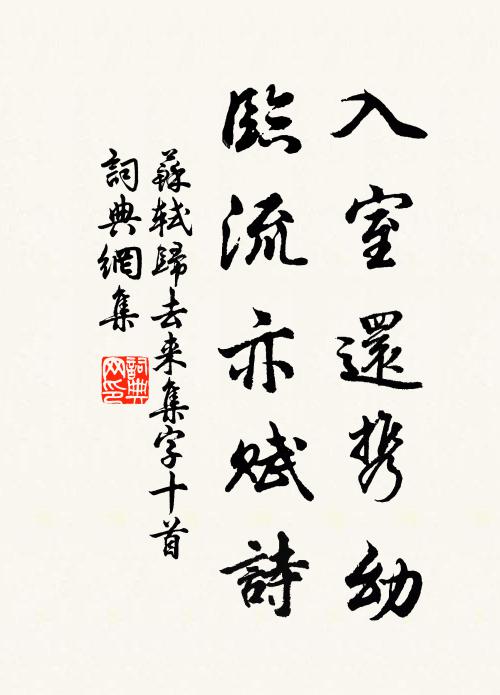 入室還携幼
臨流亦賦詩
蘇軾歸去来集字十首
詞典網集
詞典网印